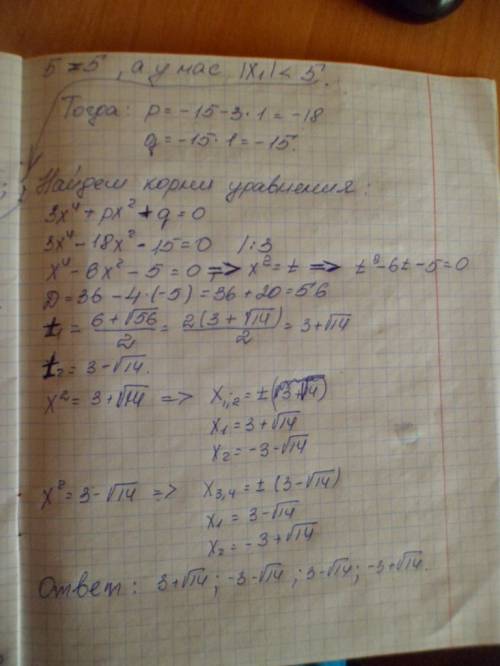 5 ≠ 5, а у нас |x₁| < 5.
Тогда: p = -15 - 3·1 = -18
q = -15·1 = -15.
Найдем корни уравнения:
3x⁴ + px² + q = 0
3x⁴ - 18x² - 15 = 0 /:3
x⁴ - 6x² - 5 = 0 => x² = t => t² - 6t - 5 = 0
D = 36 - 4·(-5) = 36 + 20 = 56
t₁ = (6 + √56)/2 = 2(3 + √14)/2 = 3 + √14
t₂ = 3 - √14.
x² = 3 + √14 => x₁,₂ = ±(√3+√14)
x₁ = 3 + √14
x₂ = -3 - √14
x² = 3 - √14 => x₃,₄ = ±(3 - √14)
x₁ = 3 - √14
x₂ = -3 + √14
Ответ: 3+√14; -3-√14; 3-√14; -3+√14.